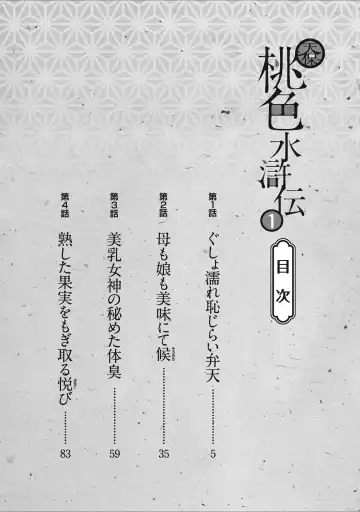 天保
桃色水滸伝
1
目次
第1話
ぐしょ濡れ恥じらい弁天 5
第2話
母も娘も美味にて候 35
そうろう
第3話
美乳女神の秘めた体臭 59
第4話
熟した果実をもぎ取る悦び 83